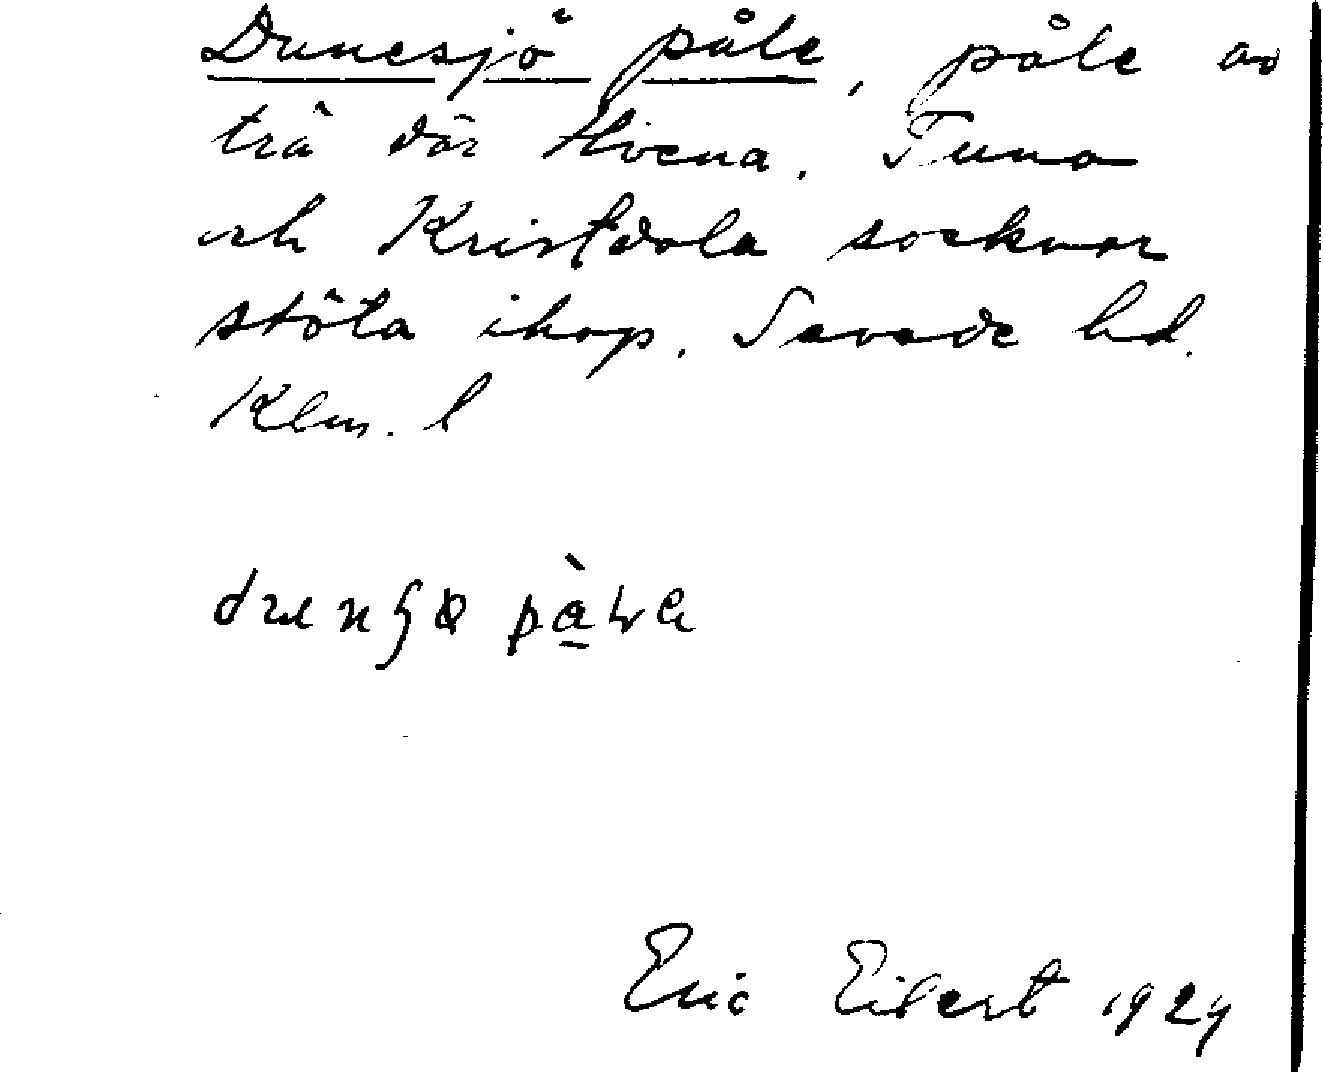 Dunesjö påle, påle av
trä där Hvena, Tuna
och Kristdala socknar
stöta ihop. Sevede hd.
Klm. l
Eric Eilert 1924